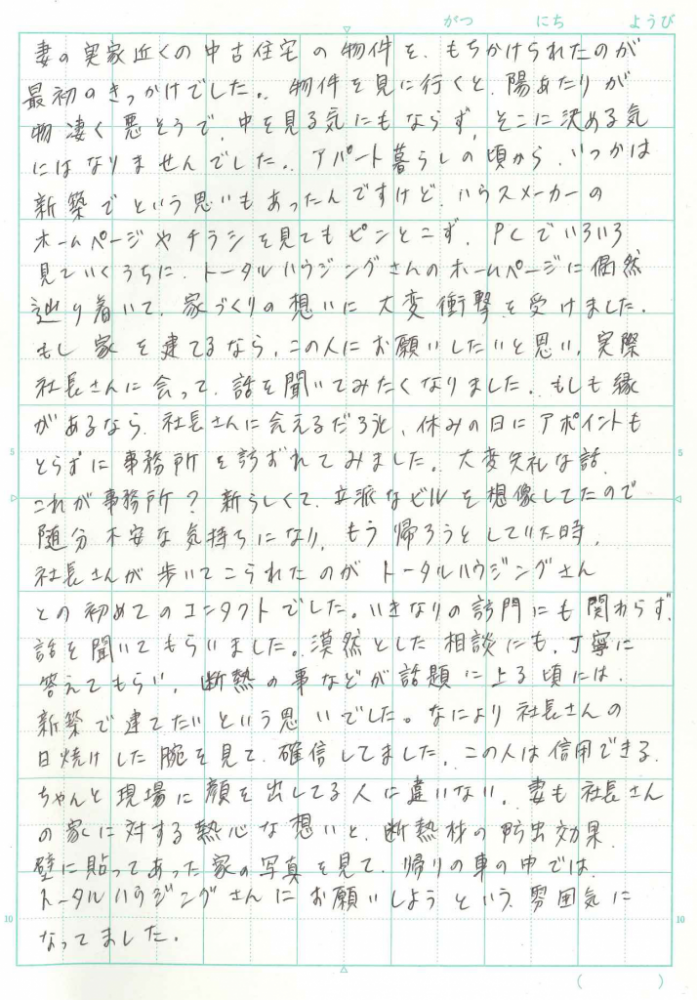 がつ にち ようび
妻の実家近くの中古住宅の物件を、もちかけられたのが
最初のきっかけでした。物件を見に行くと、陽あたりが
物凄く悪そうで、中を見る気にもならず、そこに決める気
にはなりませんでした。アパート暮らしの頃から、いつかは
新築でという思いもあったんですけど、ハウスメーカーの
ホームページやチラシを見てもピンとこず、PCでいろいろ
見ていくうちに、トータルハウジングさんのホームページに偶然
辿り着いて、家づくりの想いに大変衝撃を受けました。
もし家を建てるなら、この人にお願いしたいと思い、実際
社長さんに会って、話を聞いてみたくなりました。もしも縁
があるなら、社長さんに会えるだろうと、休みの日にアポイントも
とらずに事務所を訪ずれてみました。大変失礼な話、
これが事務所?新らしくて、立派なビルを想像してたので
随分不安な気持ちになり、もう帰ろうとしていた時、
社長さんが歩いてこられたのがトータルハウジングさん
との初めてのコンタクトでした。いきなりの訪門にも関わらず、
話を聞いてもらいました。漠然とした相談にも、丁寧に
答えてもらい、断熱の事などが話題に上る頃には、
新築で建てたいという思いでした。なにより社長さんの
日焼けした腕を見て、確信してました。この人は信用できる。
ちゃんと現場に顔を出してる人に違いない。妻も社長さん
の家に対する熱心な想いと、断熱材の防虫効果、
壁に貼ってあった家の写真を見て、帰りの車の中では、
トータルハウジングさんにお願いしようという雰囲気に
なってました。
5
5
10
10
( )